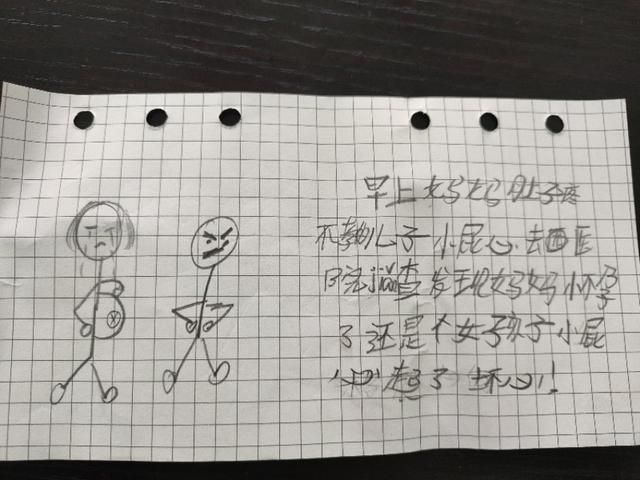 早上妈妈肚子疼
儿子小屁心.去医
院检查发现妈妈小怀孕
了还是个女孩子小屁
起了坏心!